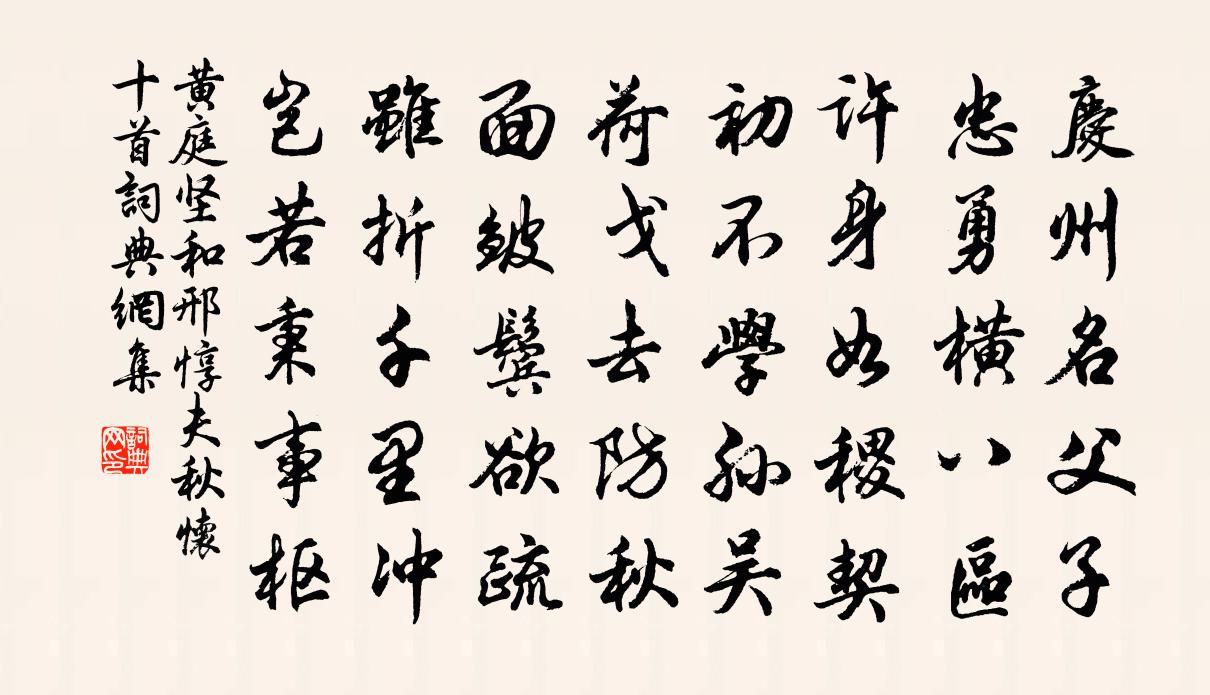 慶州名父子
忠勇橫八區
許身如稷契
初不學孫吴
荷戈去防秋
面皴鬓欲疏
雖折千里冲
岂若秉事枢
黄庭坚和邢惇夫秋懷
十首詞典網集
詞典网印